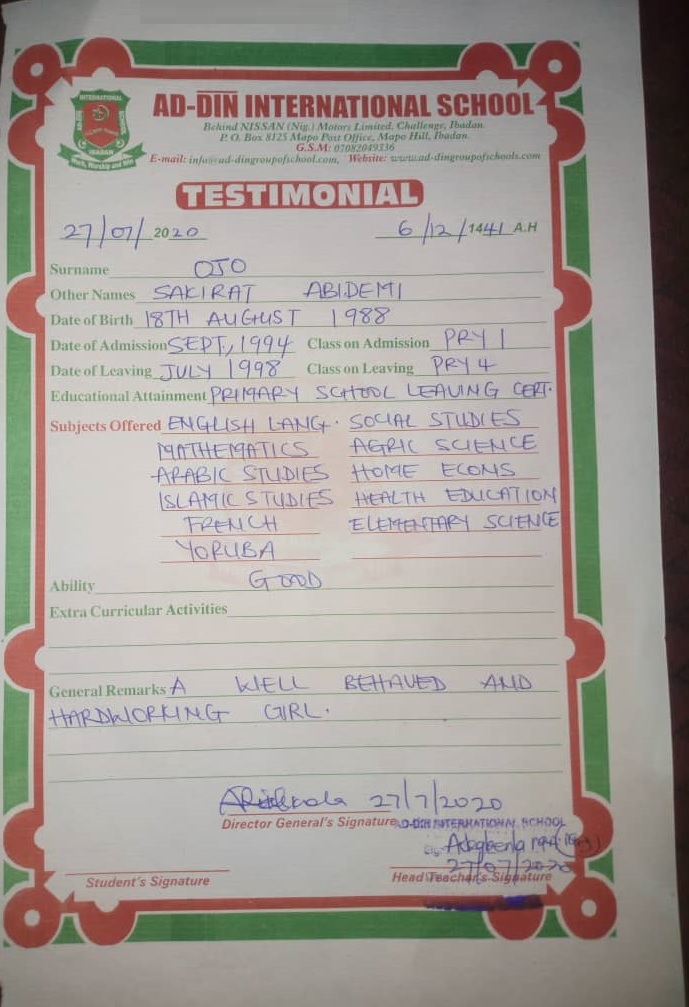 INTERNATIONAL
AD-DIN
SCHOOL
IBADAN
Work, Worship and Win
AD-DĪN INTERNATIONAL SCHOOL
Behind NISSAN (Nig.) Motors Limited. Challenge, Ibadan.
P. O. Box 8125 Mapo Post Office, Mapo Hill, Ibadan.
G.S.M: 07082049336
E-mail: info@ad-dingroupofschool.com, Website: www.ad-dingroupofschools.com
TESTIMONIAL
27/07/2020 6/12/1441 A.H
Surname OJO
Other Names SAKIRAT ABIDEMI
Date of Birth 18TH AUGUST 1988
Date of Admission SEPT, 1994 Class on Admission PRY 1
Date of Leaving JULY 1998 Class on Leaving PRY 4
Educational Attainment PRIMARY SCHOOL LEAVING CERT.
Subjects Offered ENGLISH LANG. SOCIAL STUDIES
MATHEMATICS AGRIC SCIENCE
ARABIC STUDIES HOME ECONS
ISLAMIC STUDIES HEALTH EDUCATION
FRENCH ELEMENTARY SCIENCE
YORUBA
Ability GOOD
Extra Curricular Activities
General Remarks A WELL BEHAVED AND
HARDWORKING GIRL.
27/7/2020
Director General's Signature AD-DIN INTERNATIONAL SCHOOL
27/07/2020
Student's Signature Head Teacher's Signature